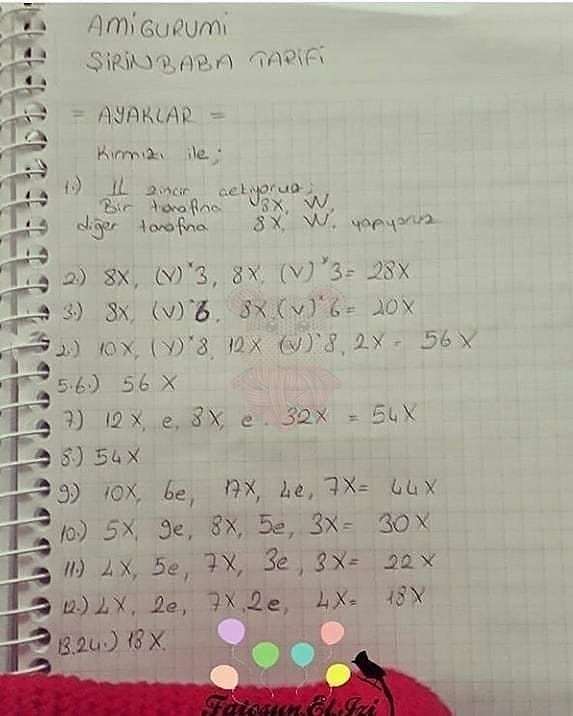 AMİGURUMİ
ŞİRİNBABA TARİFİ
= AYAKLAR =
Kırmızı ile;
1.) 11 zincir çekiyoruz;
Bir tarafına 8X, W,
diğer tarafına 8X, W, yapıyoruz
2.) 8X, (V)*3, 8X, (V)*3= 28X
3.) 8X, (V)*6, 8X, (V)*6= 20X
2.) 10X, (V)*8, 12X (V)*8, 2X= 56X
5.6.) 56X
7) 12X, e, 8X, e, 32X = 54X
8.) 54X
9.) 10X, 6e, 17X, 4e, 7X= 44X
10.) 5X, 9e, 8X, 5e, 3X= 30X
11.) 4X, 5e, 7X, 3e, 3X= 22X
12.) 4X, 2e, 7X, 2e, 4X= 18X
13.24.) 18X.
Fatosun.El.Izi